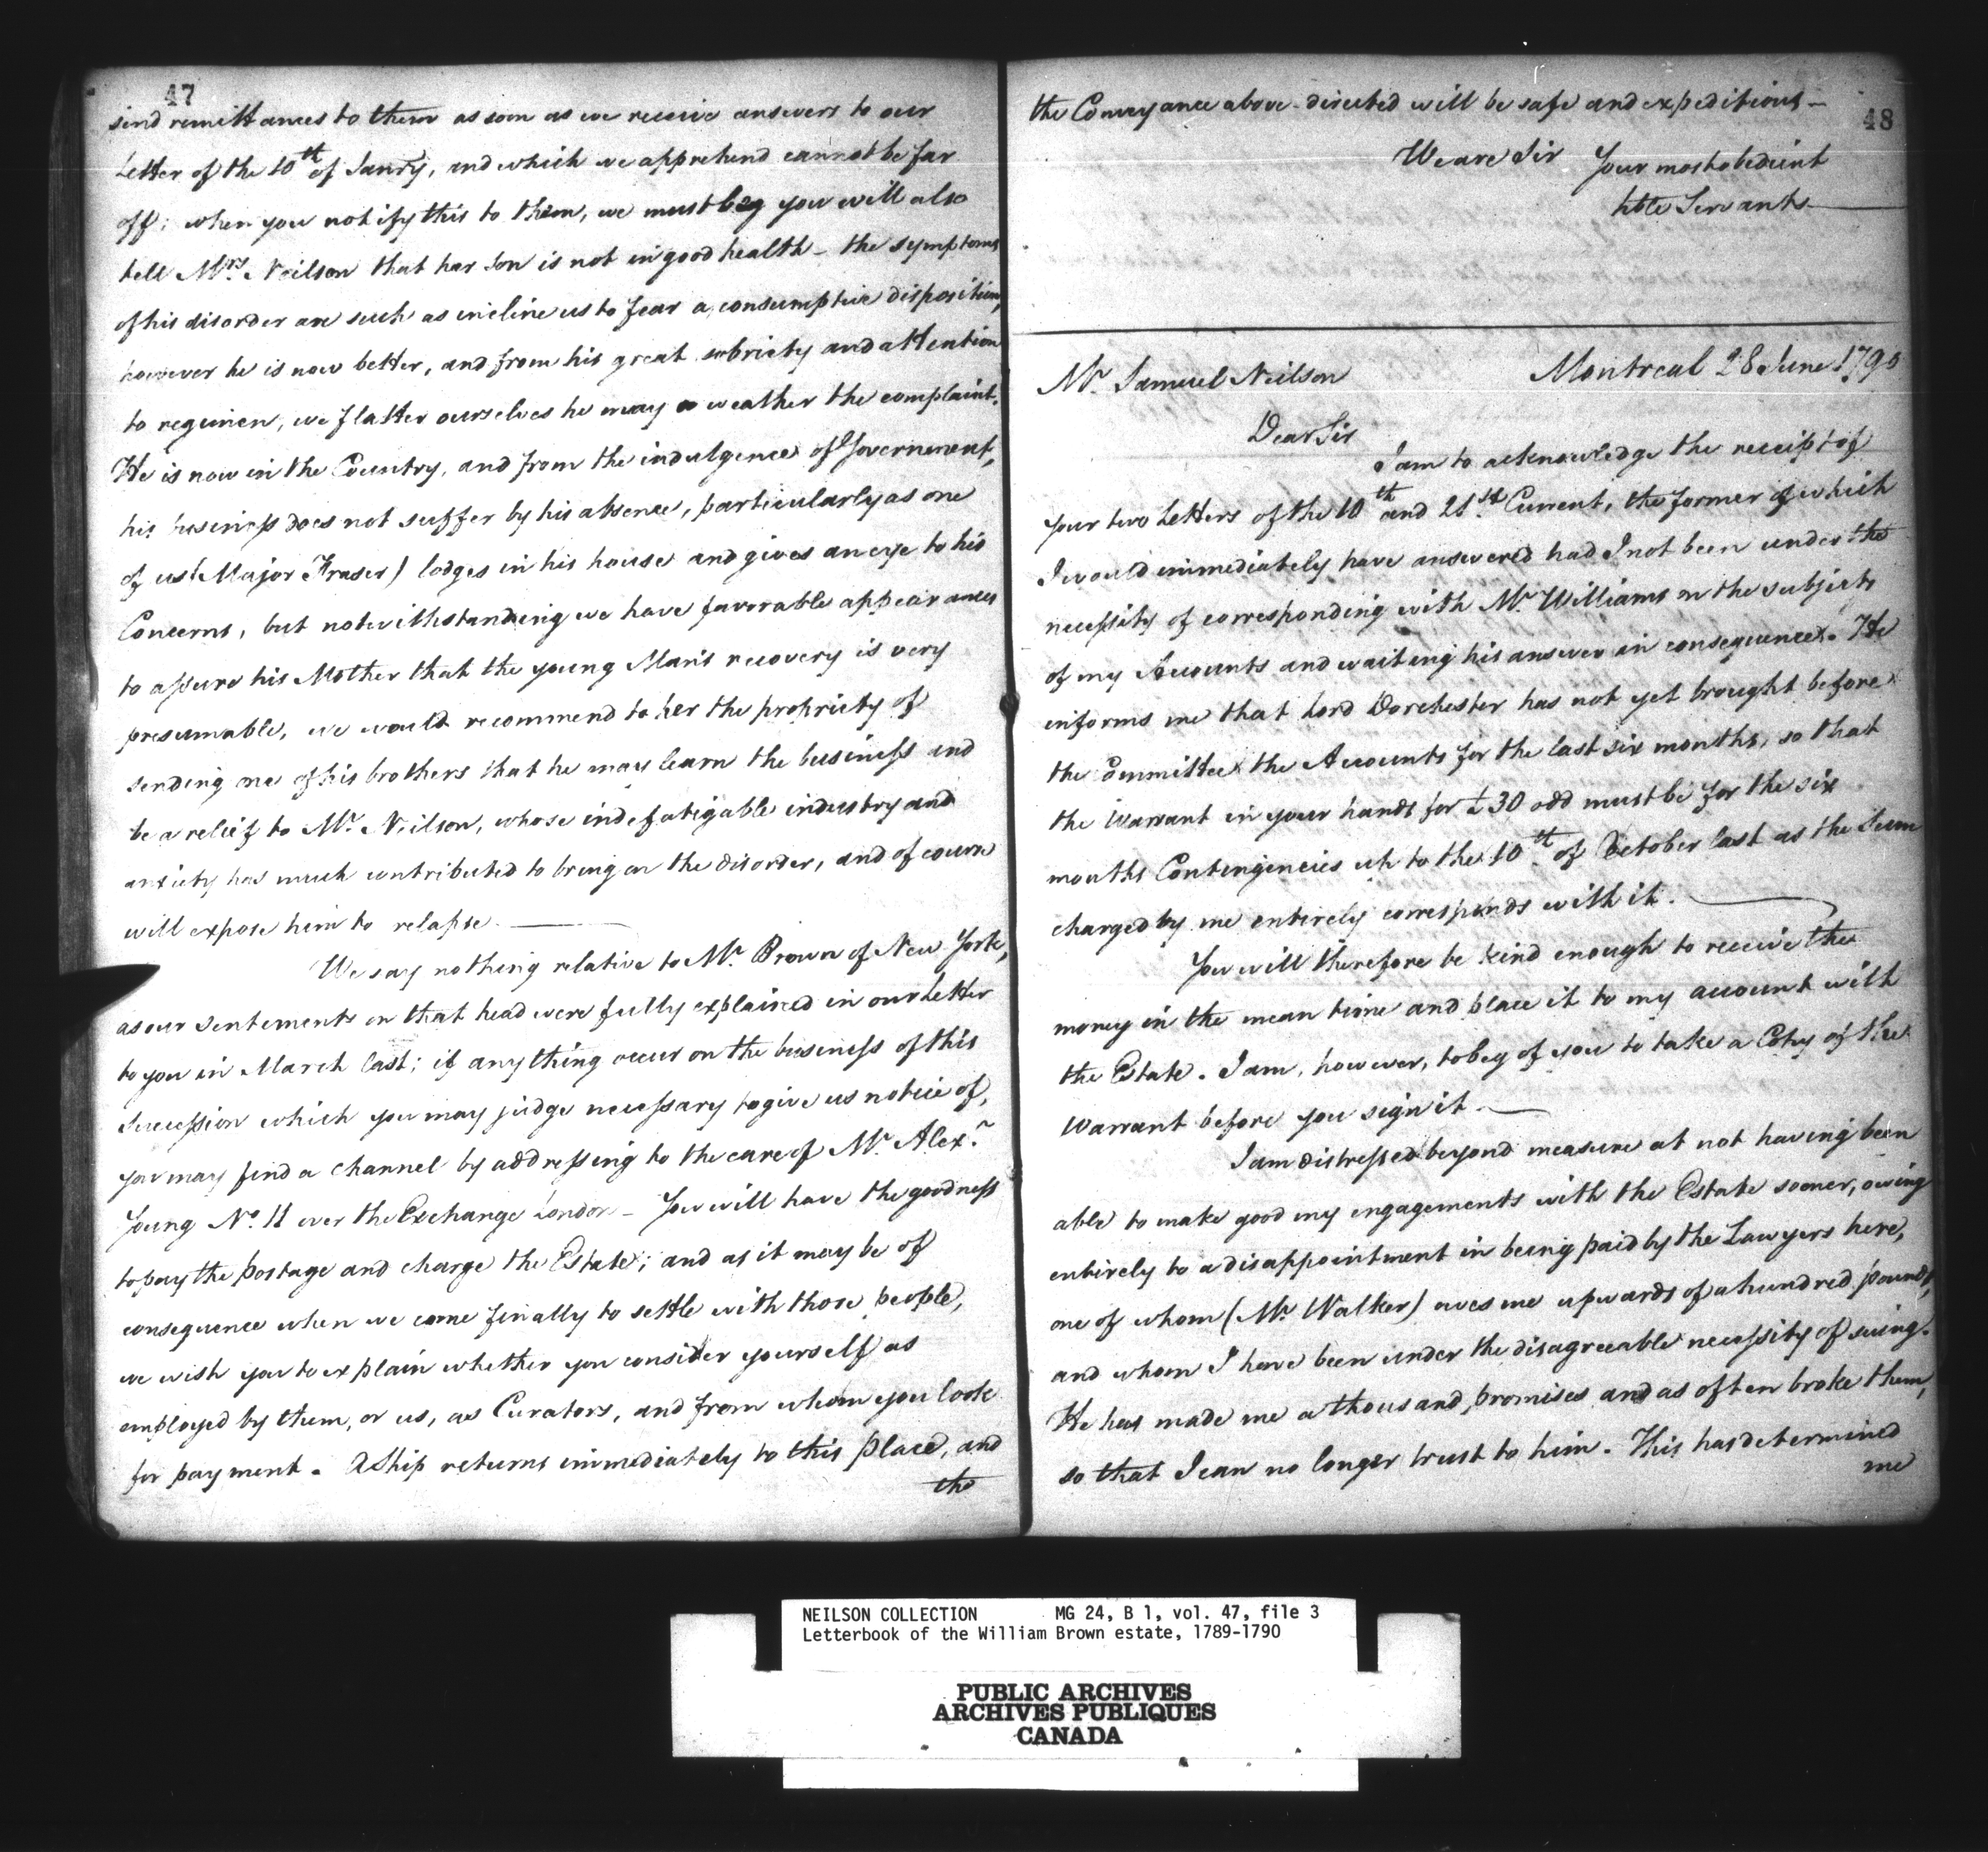 47
send remittances to them as soon as we receive answers to our
Letter of the 10th of Janry, and which we apprehend cannot be far
off; when you notify this to them, we must beg you will also
tell Mrs Neilson that her Son is not in good health - the symptoms
of his disorder are such as incline us to fear a consumptive disposition,
however he is now better, and from his great sobriety and attention
to regimen, we flatter ourselves he may weather the complaint.
He is now in the Country, and from the indulgence of Government,
his business does not suffer by his absence, particularly as one
of us (Major Fraser) lodges in his house and gives an eye to his
Concerns, but notwithstanding we have favorable appearances
to assure his Mother that the young Man's recovery is very
presumable, we would recommend to her the propriety of
sending one of his brothers that he may learn the business and
be a relief to Mr Neilson, whose indefatigable industry and
anxiety has much contributed to bring on the disorder, and of course
will expose him to relapse.
We say nothing relative to Mr Brown of New York,
as our sentements on that head were fully explained in our Letter
to you in March last; if any thing occur on the business of this
Succession which you may judge necessary to give us notice of,
you may find a channel by addressing to the care of Mr Alexr
Young No. 11 over the Exchange London - You will have the goodness
to pay the postage and charge the Estate; and as it may be of
consequence when we come finally to settle with those people,
we wish you to explain whether you consider yourself as
employed by them, or us, as Curators, and from whom you look
for payment. A Ship returns immediately to this place, and
the
48
the Conveyance above directed will be safe and expeditious -
We are Sir Your most obedient
hble Servants
Mr Samuel Neilson Montreal 28 June 1790
Dear Sir
I am to acknowledge the receipt of
your two Letters of the 10th and 21st Current, the former of which
I would immediately have answered had I not been under the
necessity of corresponding with Mr Williams on the subjects
of my Accounts and waiting his answer in consequence. He
informs me that Lord Dorchester has not yet brought before
the Committee the Accounts for the last six months, so that
the Warrant in your hands for £30 odd must be for the six
months Contingencies up to the 10th of October last as the Sum
charged by me entirely corresponds with it.
You will therefore be kind enough to receive the
money in the mean time and place it to my account with
the Estate. I am, however, to beg of you to take a Copy of the
Warrant before you sign it.
I am distressed beyond measure at not having been
able to make good my engagements with the Estate sooner, owing
entirely to a disappointment in being paid by the Lawyers here,
one of whom (Mr Walker) owes me upwards of a hundred pounds,
and whom I have been under the disagreeable necessity of suing.
He has made me a thousand promises and as often broke them,
so that I can no longer trust to him. This has determined
me
NEILSON COLLECTION MG 24, B 1, vol. 47, file 3
Letterbook of the William Brown estate, 1789-1790
PUBLIC ARCHIVES
ARCHIVES PUBLIQUES
CANADA